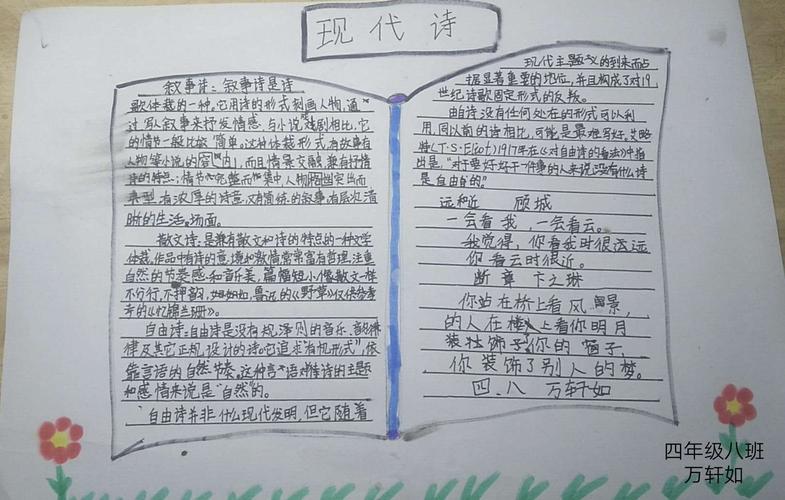 现代诗
叙事诗：叙事诗是诗
歌体裁的一种。它用诗的形式刻画人物，通
过写人叙事来抒发情感，与小说戏剧相比，它
的情节一般比较简单。这种体裁形式有故事有
人物像小说的容内，而且情景交融，兼有抒情
诗的特点；情节完整而集中，人物性格突出而
典型，有浓厚的诗意，又有简练的叙事，有层次清
晰的生活。场面。
散文诗，是兼有散文和诗的特点的一种文学
体裁，作品中有诗的意境和激情常常富有哲理，注重
自然的节奏感和音乐美，篇幅短小像散文一样
不分行，不押韵，如鲁迅的《野草》
的《忆锦兰珊》。
自由诗：自由诗是没有规泽则的音乐、音韵
律及其它正规设计的诗。它追求"有机形式"，依
靠言语的自然节奏。这种言语对诗的主题
和感情来说是"自然的。
"自由诗并非什么现代发明，但它随着
现代主题义的到来而占
据显著重要的地位，并且构成了对19
世纪诗歌固定形式的反叛。
由诗没有任何处在的形式可以利
用，同以前的诗相比，可能是最难写好，艾略
特（T·S·Eliot）1917年在《对自由诗的看法》中指
出是，"对于要好好干一件事的人来说，没有什么诗
是自由的。"
远和近 顾城
一会看我，一会看云。
我觉得，你看我时很远
你看云时很近。
断章 卞之琳
你站在桥上看风景，
的人在楼上看你明月
装饰了你的窗子，
你装饰了别人的梦。
四、八 万轩如
四年级八班
万轩如